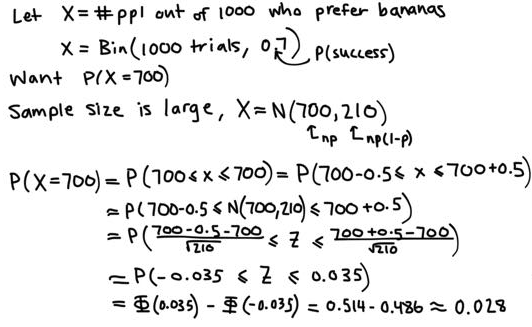 Let X = # ppl out of 1000 who prefer bananas
X = Bin(1000 trials, 0.7) P(success)
Want P(X = 700)
Sample size is large, X ≈ N(700, 210)
np np(1-p)
P(X=700) = P(700 ≤ x ≤ 700) = P(700-0.5 ≤ x ≤ 700+0.5)
≈ P(700-0.5 ≤ N(700,210) ≤ 700+0.5)
= P((700-0.5-700)/√210 ≤ Z ≤ (700+0.5-700)/√210)
= P(-0.035 ≤ Z ≤ 0.035)
= Φ(0.035) - Φ(-0.035) = 0.514 - 0.486 ≈ 0.028